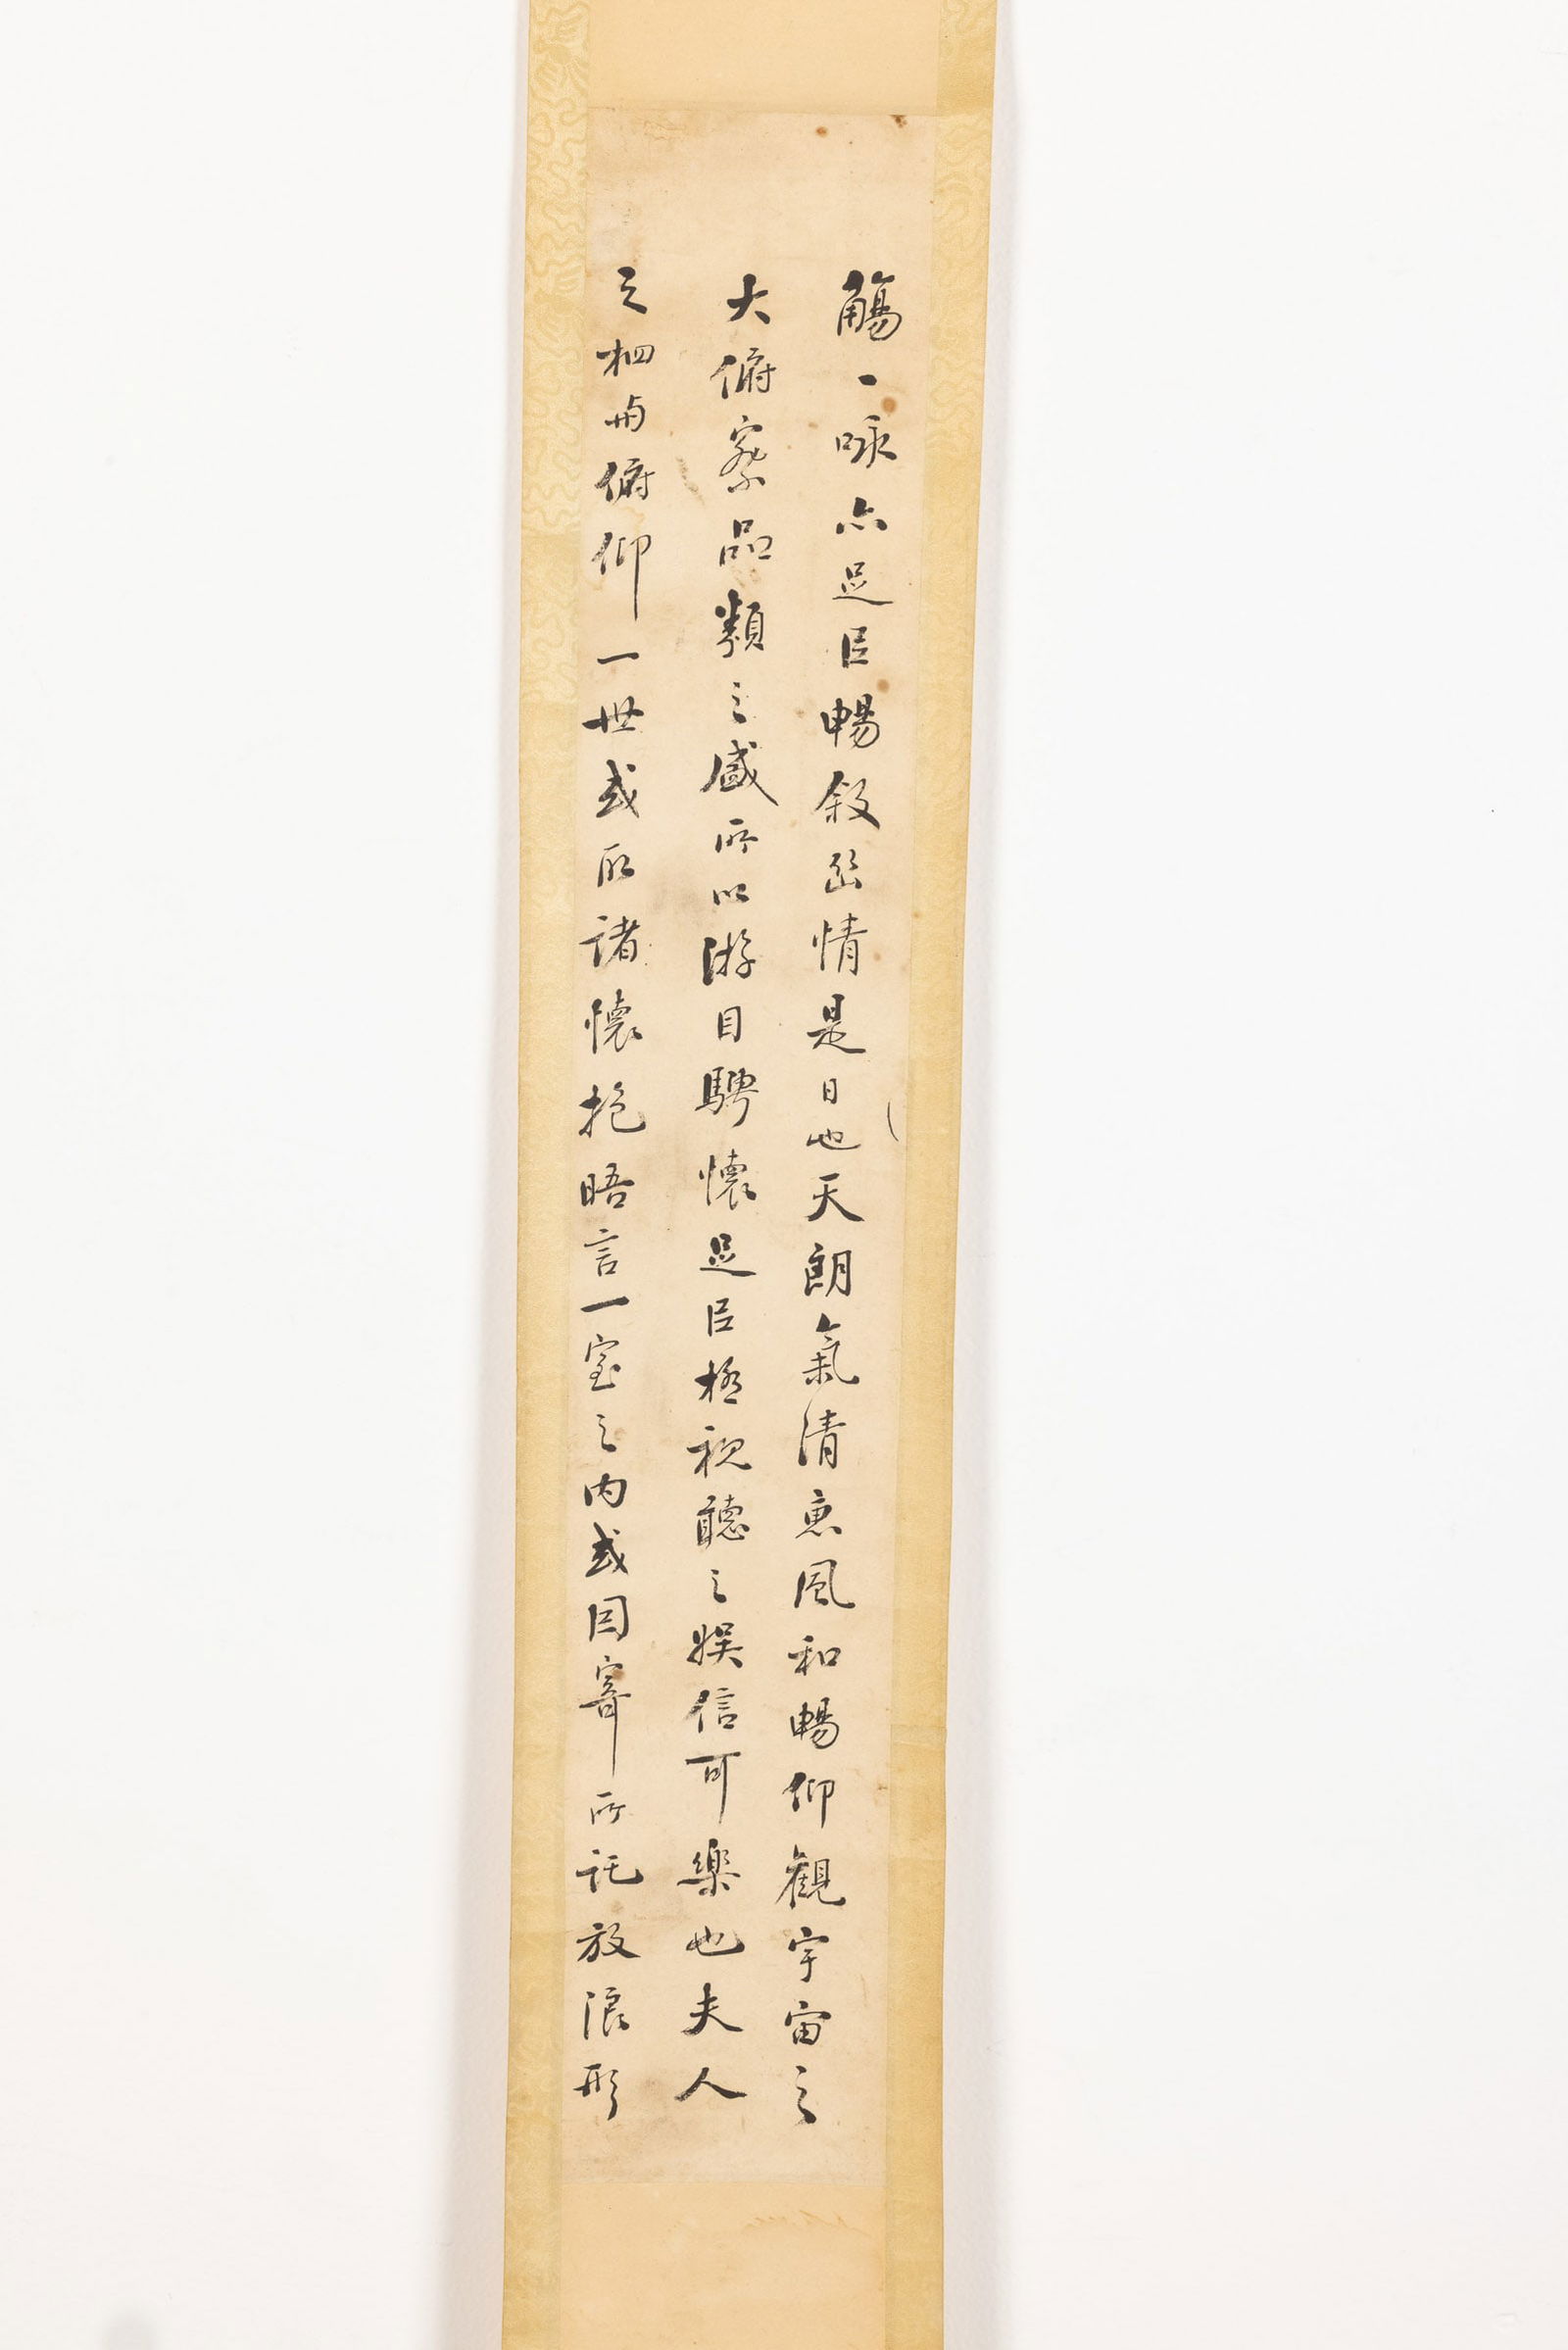 觴一詠亦足以暢敘幽情是日也天朗氣清惠風和暢仰觀宇宙之
大俯察品類之盛所以游目騁懷足以極視聽之娛信可樂也夫人
之相與俯仰一世或取諸懷抱晤言一室之內或因寄所託放浪形